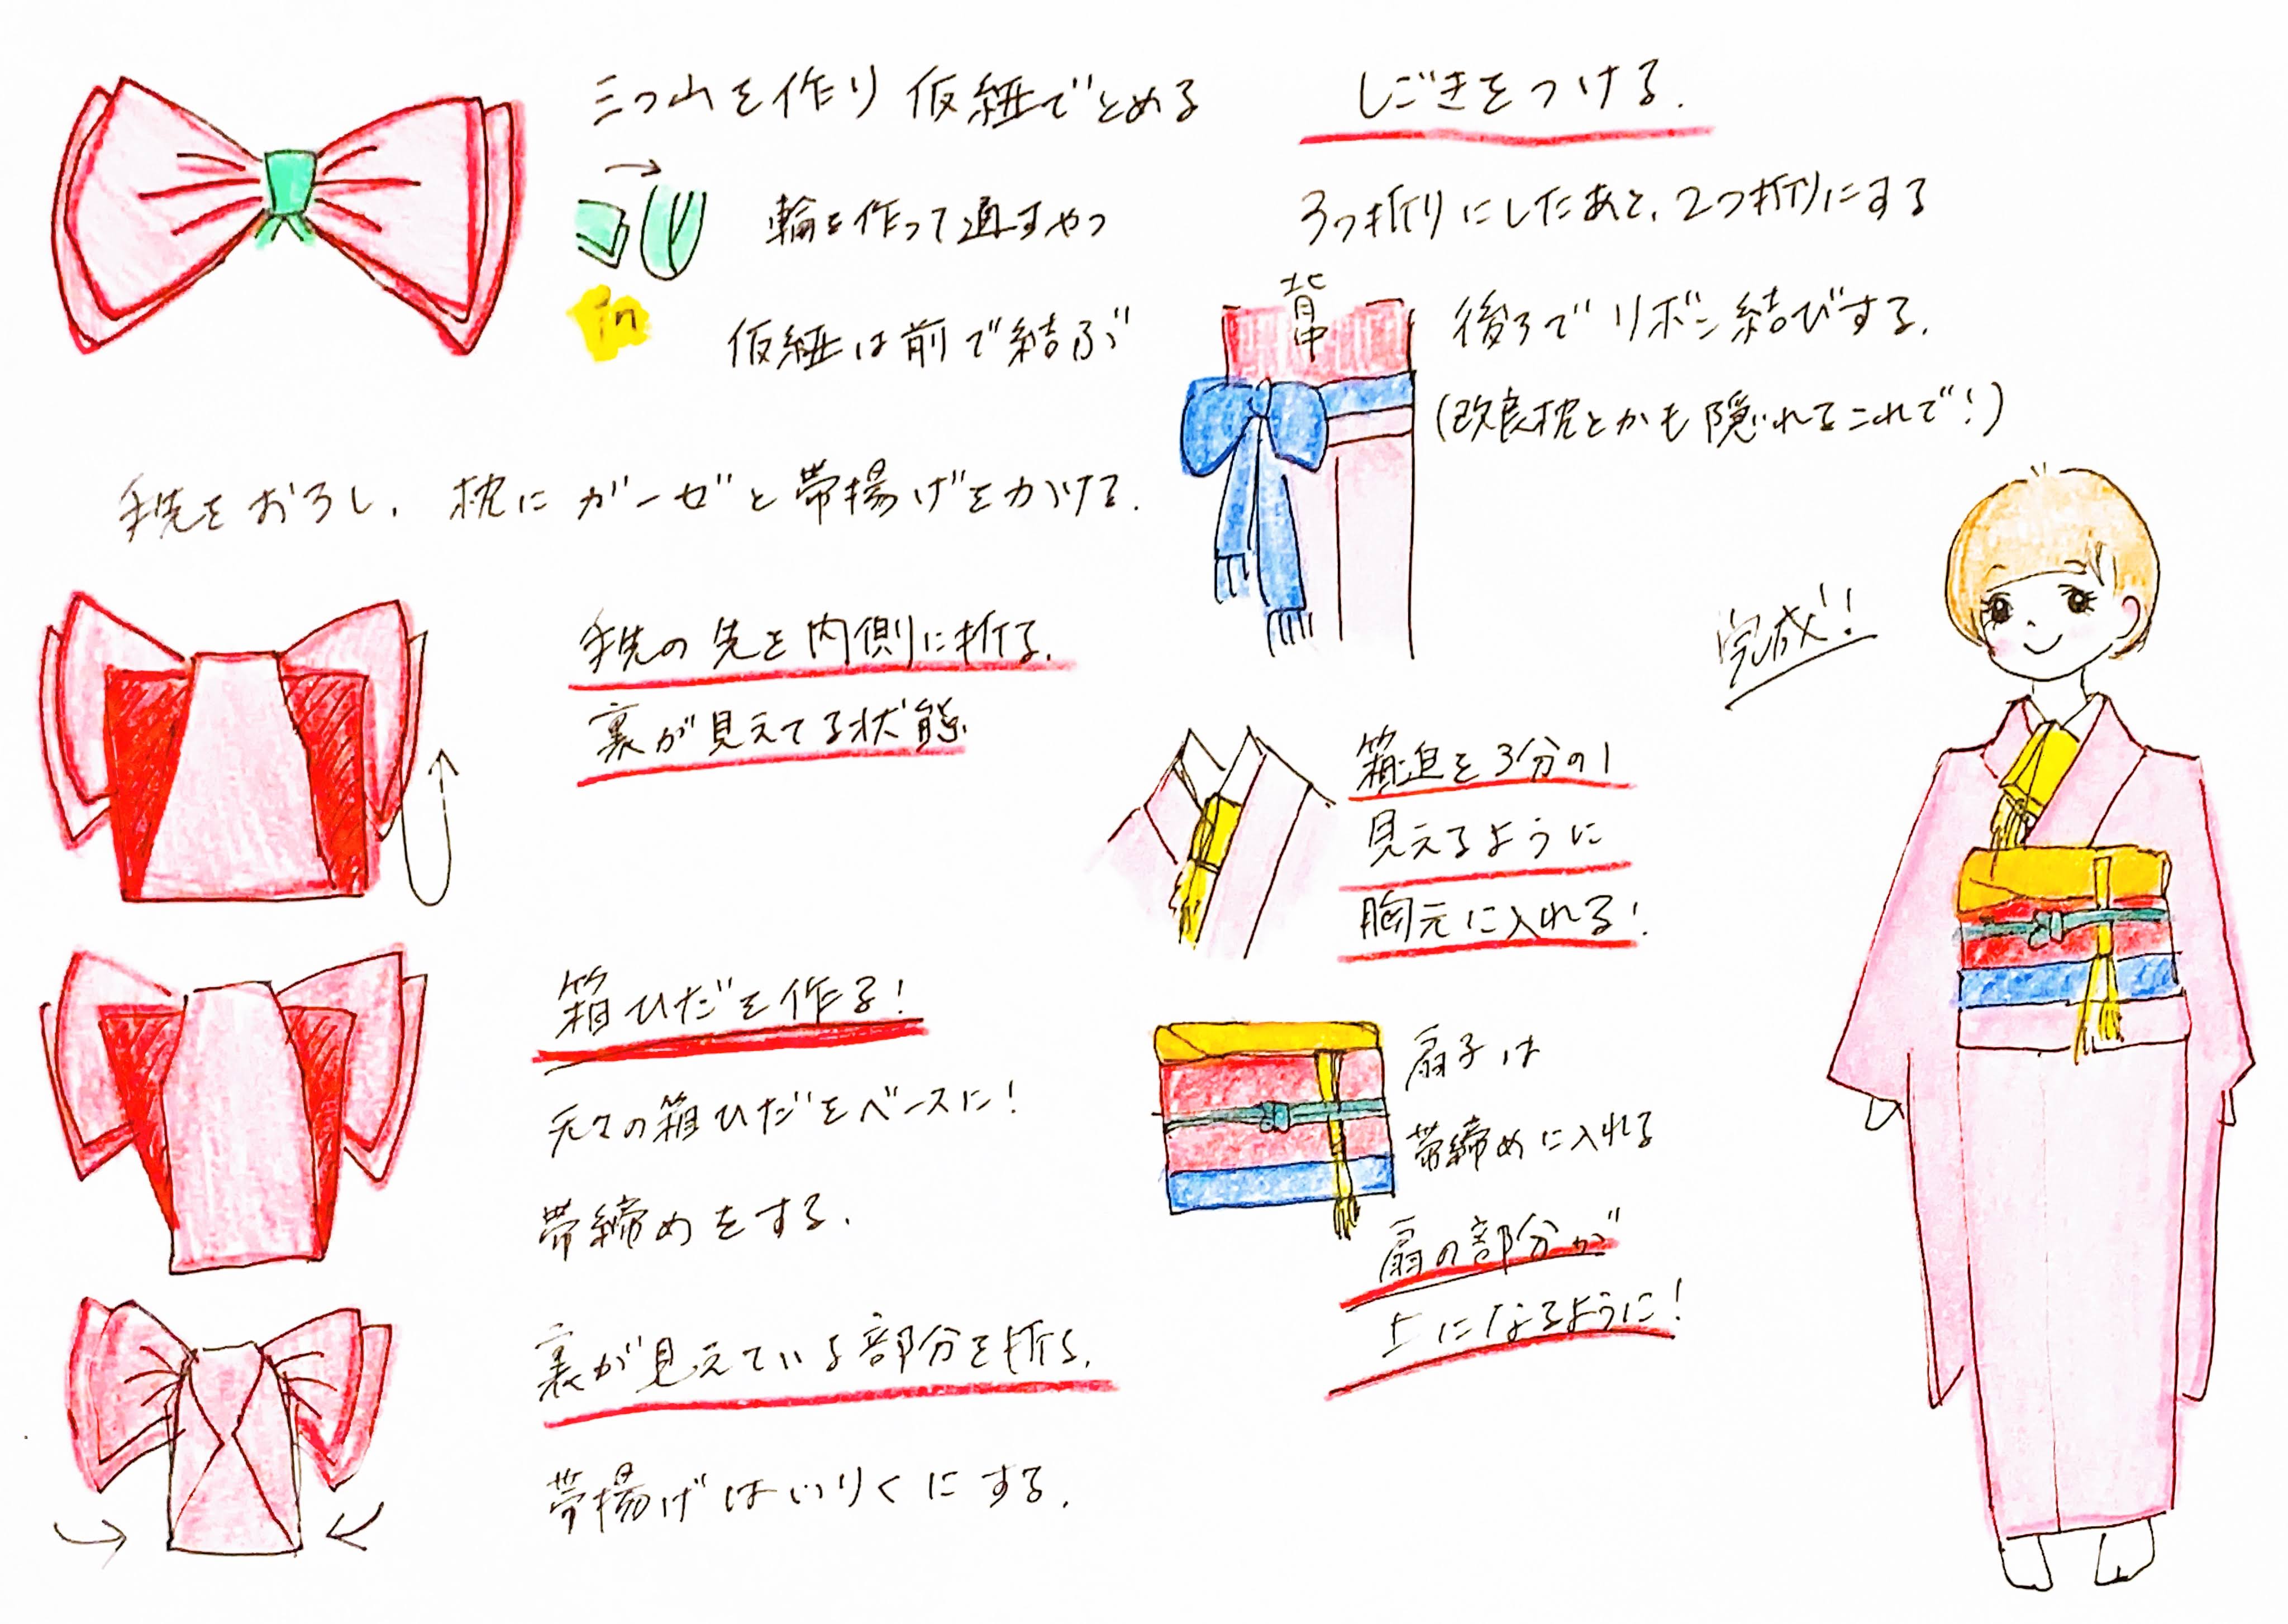 三つ山を作り仮紐でとめる
輪を作って通すやつ
in
仮紐は前で結ぶ
手先をおろし、枕にガーゼと帯揚げをかける.
手先の先を内側に折る.
裏が見えてる状態.
箱ひだを作る!
元々の箱ひだをベースに!
帯締めをする.
裏が見えている部分を折る.
帯揚げはいりくにする.
しごきをつける.
3つ折りにしたあと、2つ折りにする
背中
後ろでリボン結びする.
(改良枕とかも隠れるこれで!)
箱迫を3分の1
見えるように
胸元に入れる!
扇子は
帯締めに入れる
扇の部分が
上になるように!
完成!